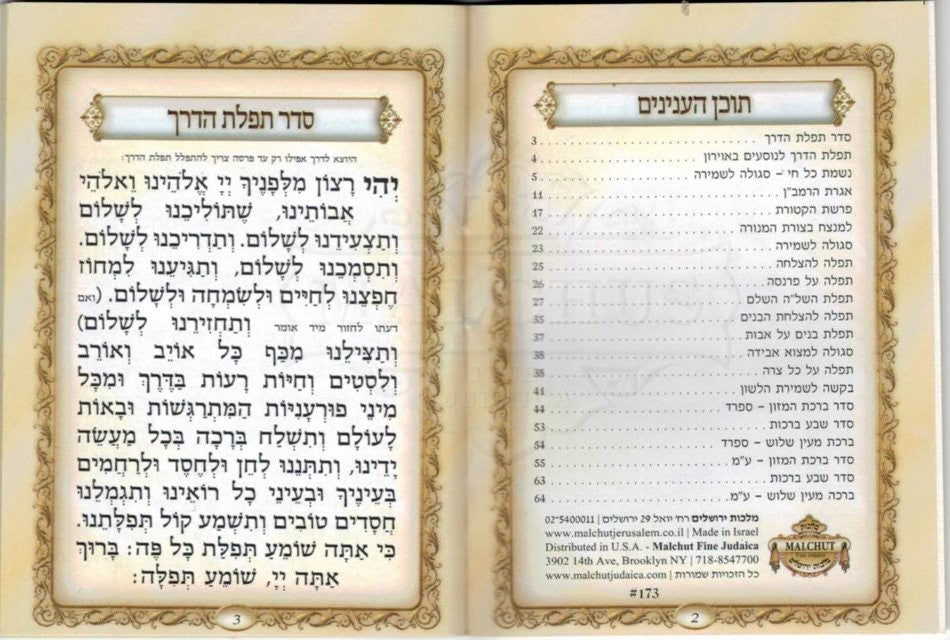 תוכן הענינים
סדר תפלת הדרך 3
תפלת הדרך לנוסעים באוירון 4
נשמת כל חי – סגולה לשמירה 5
אגרת הרמב"ן 11
פרשת הקטורת 17
למנצח בצורת המנורה 22
סגולה לשמירה 23
תפלה להצלחה 25
תפלה על פרנסה 26
תפלת השל"ה השלם 27
תפלה להצלחת הבנים 35
תפלת בנים על אבות 37
סגולה למצוא אבידה 38
תפלה על כל צרה 38
בקשה לשמירת הלשון 41
סדר ברכת המזון – ספרד 44
סדר שבע ברכות 53
ברכת מעין שלוש – ספרד 54
סדר ברכת המזון – ע"מ 55
סדר שבע ברכות 63
ברכה מעין שלוש – ע"מ 64
מלכות ירושלים רח' יואל 29 ירושלים | 02-5400011
www.malchutjerusalem.co.il | Made in Israel
Distributed in U.S.A. - Malchut Fine Judaica
3902 14th Ave, Brooklyn NY | 718-8547700
www.malchutjudaica.com | כל הזכויות שמורות
#173
מלכות
MALCHUT
Fine Judaica
מלכות ירושלים
2
סדר תפלת הדרך
היוצא לדרך אפילו רק עד פרסה צריך להתפלל תפלת הדרך:
יְהִי רָצוֹן מִלְּפָנֶיךָ יְיָ אֱלֹהֵינוּ וֵאלֹהֵי
אֲבוֹתֵינוּ, שֶׁתּוֹלִיכֵנוּ לְשָׁלוֹם
וְתַצְעִידֵנוּ לְשָׁלוֹם. וְתַדְרִיכֵנוּ לְשָׁלוֹם.
וְתִסְמְכֵנוּ לְשָׁלוֹם, וְתַגִּיעֵנוּ לִמְחוֹז
חֶפְצֵנוּ לְחַיִּים וּלְשִׂמְחָה וּלְשָׁלוֹם. (ואם
דעתו לחזור מיד אומר וְתַחְזִירֵנוּ לְשָׁלוֹם)
וְתַצִּילֵנוּ מִכַּף כָּל אוֹיֵב וְאוֹרֵב
וְלִסְטִים וְחַיּוֹת רָעוֹת בַּדֶּרֶךְ וּמִכָּל
מִינֵי פוּרְעָנִיּוֹת הַמִּתְרַגְּשׁוֹת וּבָאוֹת
לָעוֹלָם וְתִשְׁלַח בְּרָכָה בְּכָל מַעֲשֵׂה
יָדֵינוּ, וְתִתְּנֵנוּ לְחֵן וּלְחֶסֶד וּלְרַחֲמִים
בְּעֵינֶיךָ וּבְעֵינֵי כָל רוֹאֵינוּ וְתִגְמְלֵנוּ
חֲסָדִים טוֹבִים וְתִשְׁמַע קוֹל תְּפִלָּתֵנוּ.
כִּי אַתָּה שׁוֹמֵעַ תְּפִלַּת כָּל פֶּה: בָּרוּךְ
אַתָּה יְיָ, שׁוֹמֵעַ תְּפִלָּה:
3
MALCHUS